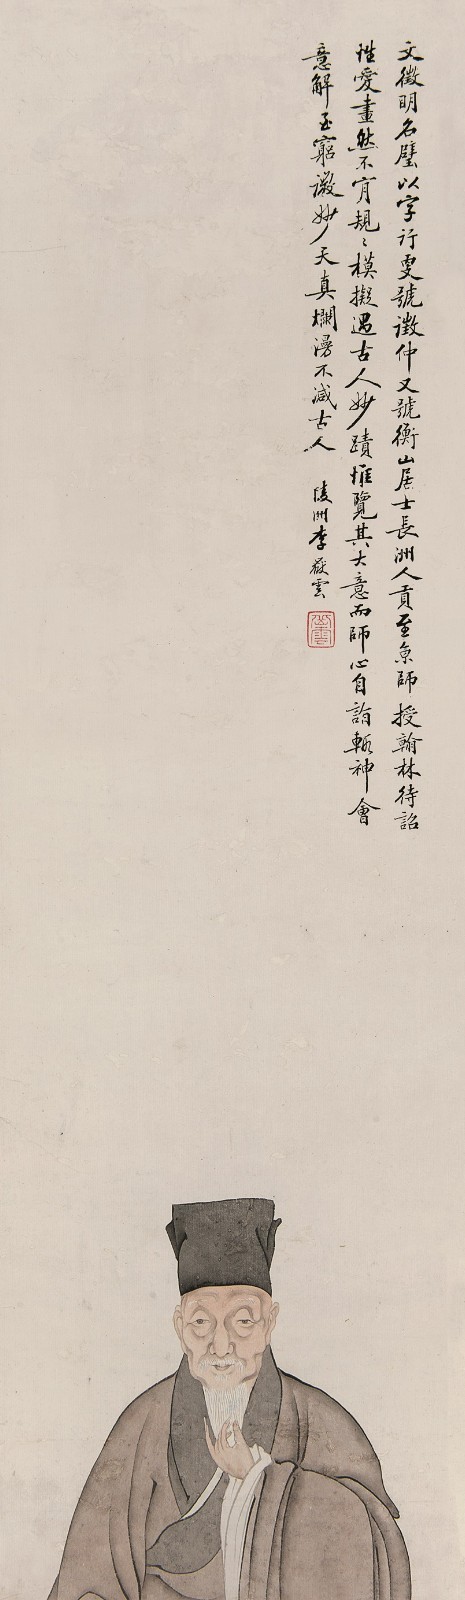 文徵明名璧以字行更號徵仲又號衡山居士長洲人貢至京師授翰林待詔
性愛畫然不肯規〻模擬遇古人妙蹟惟覽其大意而師心自詣輒神會
意解至窮微妙天真爛漫不減古人
陵州李嶽雲